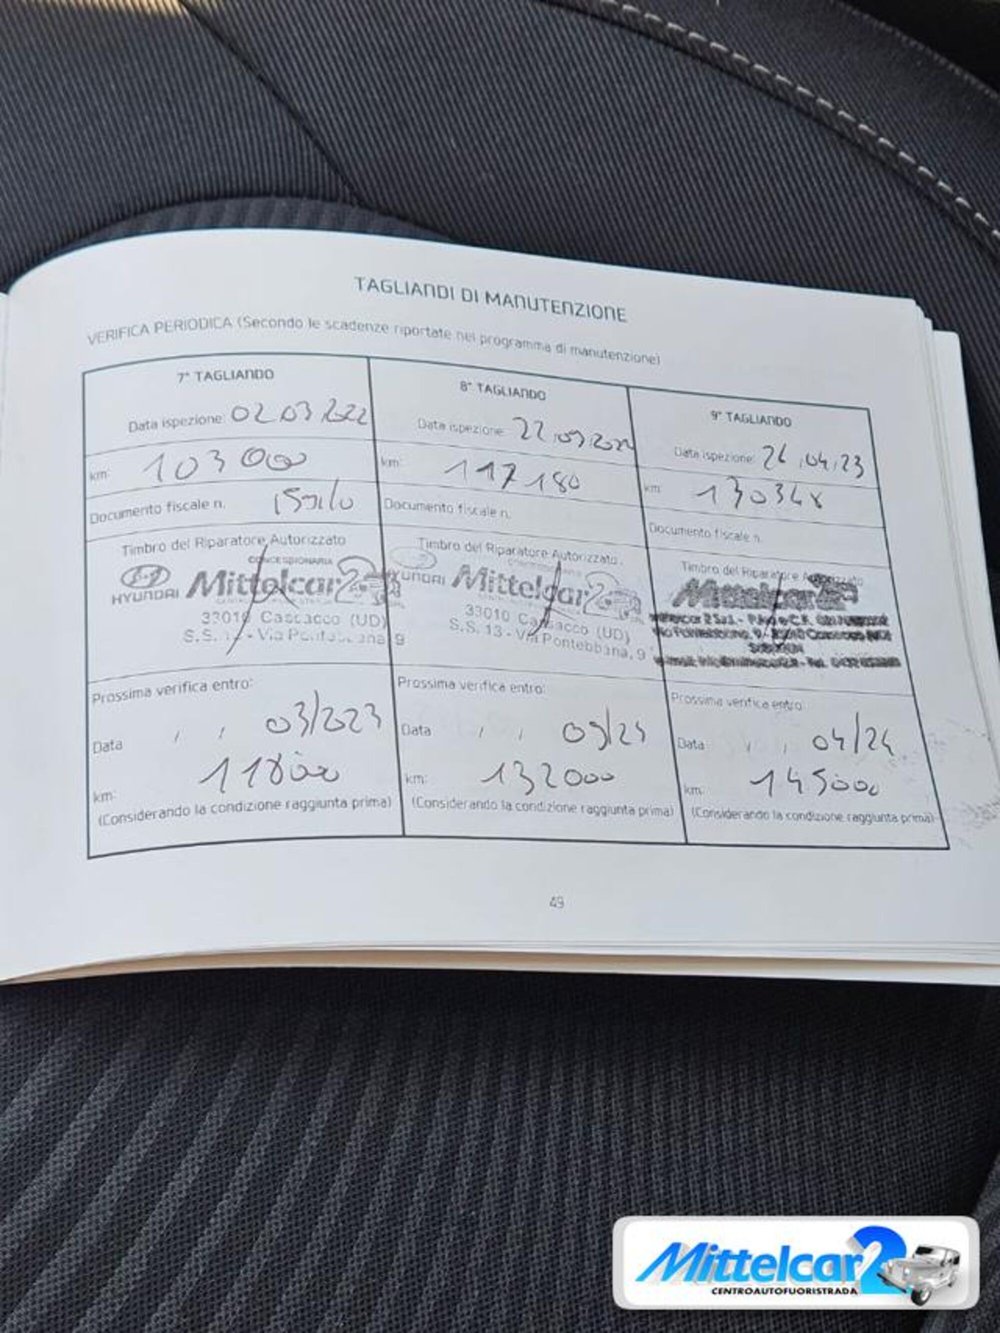 TAGLIANDI DI MANUTENZIONE
VERIFICA PERIODICA (Secondo le scadenze riportate nel programma di manutenzione)
7° TAGLIANDO
Data ispezione: 02.03.2022
km: 103000
Documento fiscale n.
Timbro del Riparatore Autorizzato
CONCESSIONARIA
HYUNDAI Mittelcar2
33010 Cassacco (UD)
S.S. 13 - Via Pontebbana, 9
Prossima verifica entro:
Data , , 03/2023
km: 118000
(Considerando la condizione raggiunta prima)
8° TAGLIANDO
Data ispezione: 22.09.2022
km: 117180
Documento fiscale n.
Timbro del Riparatore Autorizzato
CONCESSIONARIA
HYUNDAI Mittelcar2
33010 Cassacco (UD)
S.S. 13 - Via Pontebbana, 9
Prossima verifica entro:
Data , , 09/24
km: 132000
(Considerando la condizione raggiunta prima)
9° TAGLIANDO
Data ispezione: 26.04.23
km: 130348
Documento fiscale n.
Timbro del Riparatore Autorizzato
Mittelcar2
Prossima verifica entro:
Data , , 04/24
km: 145000
(Considerando la condizione raggiunta prima)
49
Mittelcar2
CENTROAUTOFUORISTRADA